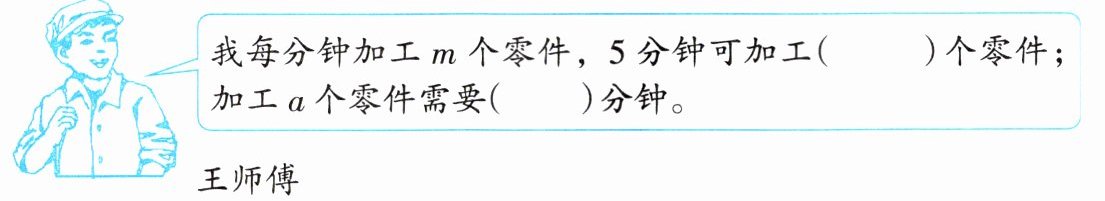 我每分钟加工 m 个零件，5 分钟可加工(　　　)个零件；
加工 a 个零件需要(　　)分钟。
王师傅